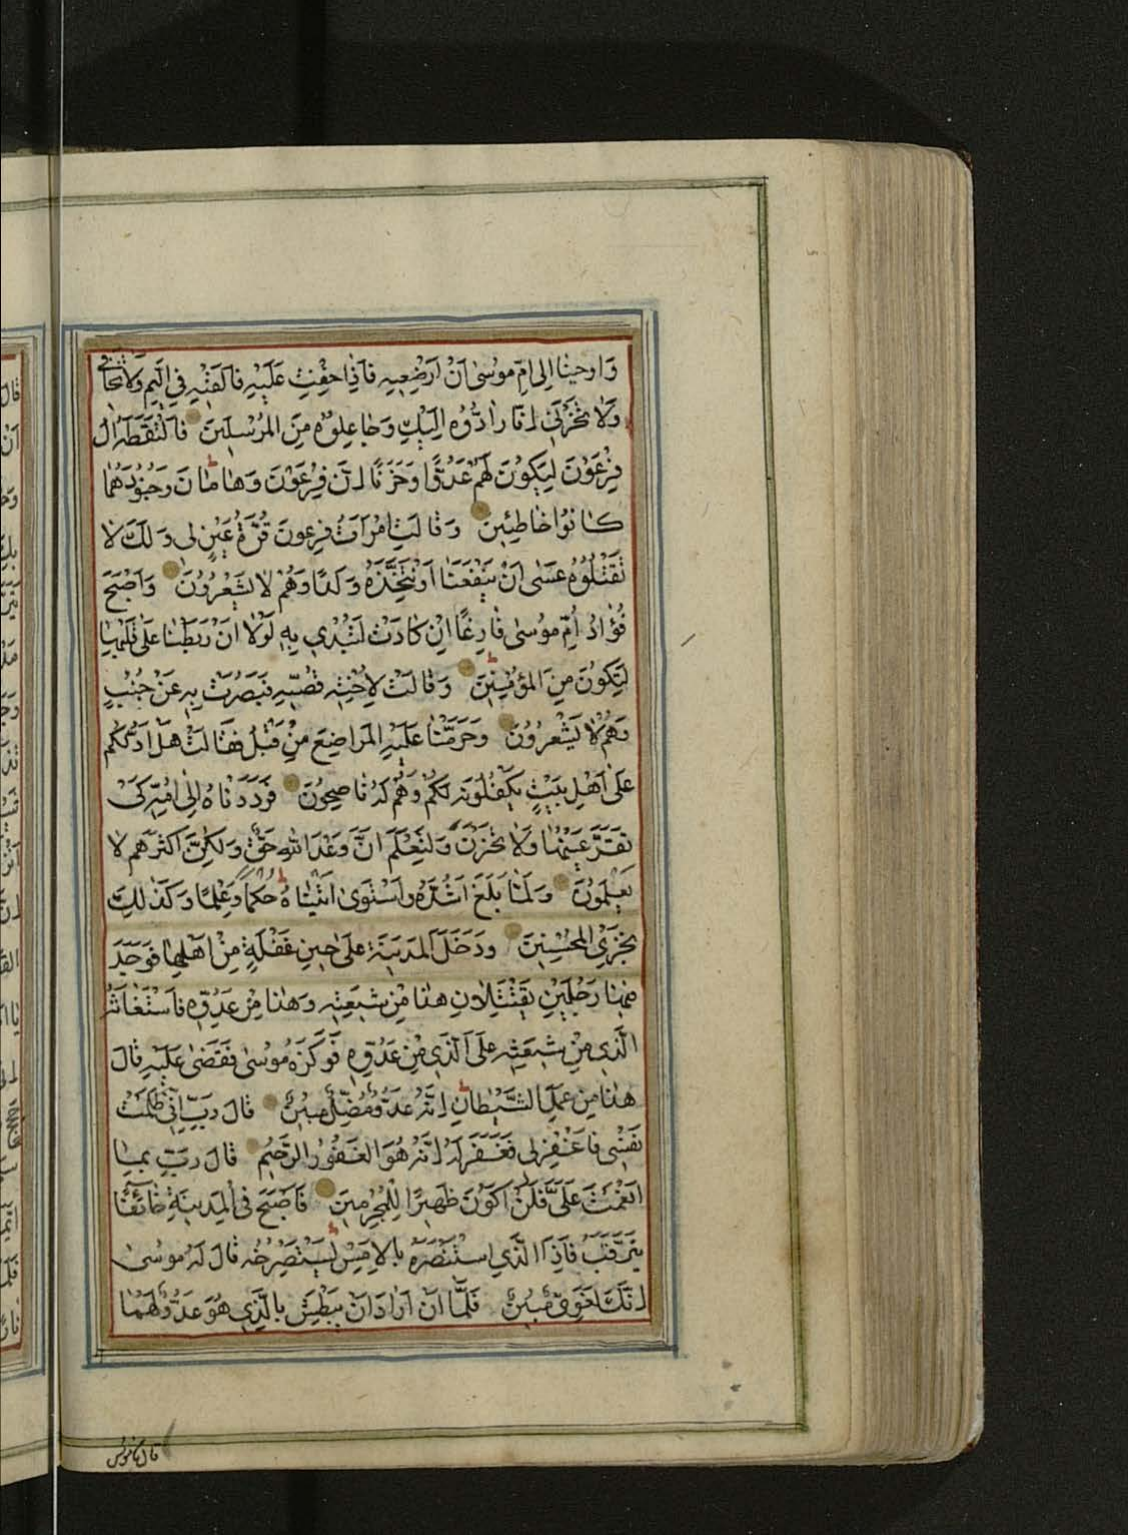 وَاوحينا اِلى اُمِّ موُسىٰ اَنْ اَرْضِعيهِ فاَذِا خِفْتِ عَلَيْهِ فاَلْقيْهِ فِي الْيَمِ وَلاٰ تَخافي
وَلاٰ تَحْزَني اِنّا رادُّوُه اِلَيْكِ وَجاعِلوُهُ مِنَ المُرْسَلينَ فاَلْتَقَطَهُ اٰلُ
فِرْعَوْنَ لِيَكوُنَ لَهُمْ عَدُوًّا وَحَزَنًا اِنَّ فِرْعَوْنَ وَهٰامٰانَ وَجُنوُدَهُمٰا
كانوُا خاطِئينَ وَقالَتِ امْرَاَتُ فِرعونَ قُرَّةُ عَيْنٍ لي وَلَكَ لاٰ
تَقْتُلوُهُ عَسٰى اَنْ يَنْفَعَنٰا اَوْ نَتَّخِذَهُ وَلَدًا وَهُمْ لاٰ يَشْعُروُنَ وَاَصْبَحَ
فُؤادُ اُمِّ موُسىٰ فارِغًا اِنْ كادَتْ لَتُبْدي بِهِ لَوْلاٰ اَنْ رَبَطْنا عَلىٰ قَلْبِها
لِتَكوُنَ مِنَ المُؤمِنينَ وَقالَتْ لاُِخْتِهِ قُصّيهِ فَبَصُرَتْ بِهِ عَنْ جُنُبٍ
وَهُمْ لاٰ يَشْعُروُنَ وَحَرَّمْنٰا عَلَيْهِ المَراضِعَ مِنْ قَبْلُ فقالَتْ هَلْ اَدُلُّكُم
عَلىٰ اَهْلِ بَيْتٍ يَكْفُلُونَهُ لَكُمْ وَهُمْ لَهُ ناصِحوُنَ فَرَدَدْناهُ اِلىٰ اُمِّهِ كَيْ
تَقَرَّ عَيْنُهٰا وَلاٰ تَحْزَنَ وَلِتَعْلَمَ اَنَّ وَعْدَ اللهِ حَقٌّ وَلكِنَّ اَكْثَرَهُم لاٰ
يَعْلَموُنَ وَلَمّٰا بَلَغَ اَشُدَّهُ وَاسْتَوىٰ اٰتَيْناهُ حُكْمًا وَعِلْمًا وَكَذٰلِكَ
نَجْزِي المُحْسِنينَ ودَخَلَ المَدينَةَ عَلىٰ حينِ غَفْلَةٍ مِنْ اَهْلِها فَوَجَدَ
فيها رَجُلَيْنِ يَقْتَتِلاٰنِ هٰذا مِنْ شيعَتِهِ وَهٰذا مِنْ عَدُوِّهِ فاَسْتَغاثَهُ
الَّذي مِنْ شيعَتِهِ عَلَى الَّذي مِنْ عَدُوِّهِ فَوَكَزَهُ موُسىٰ فَقَضىٰ عَلَيْهِ قالَ
هٰذا مِن عَمَلِ الشَّيْطانِ اِنَّهُ عَدُوٌّ مُضِلٌّ مُبينٌ قالَ رَبِّ اِنّي ظَلَمْتُ
نَفْسي فاَغْفِرْ لي فَغَفَرَ لَهُ اِنَّهُ هُوَ الغَفُوْرُ الرَّحيُم قالَ رَبِّ بِما
اَنْعَمْتَ عَلَيَّ فَلَنْ اَكوُنَ ظَهيرًا لِلْمُجْرِمينَ فَاَصْبَحَ فِي الْمَدينَةِ خائِفًا
يَتَرَقَّبُ فاَذِا الَّذِي اسْتَنْصَرَهُ بالاَمِسِ يَسْتَصْرِخُه قالَ لَهُ موُسىٰ
اِنَّكَ لَغَوِيٌّ مُبينٌ فَلَمّٰا اَنْ اَرادَ اَنْ يَبْطِشَ بالَّذي هُوَ عَدُوٌّ لَهُمٰا
قال يا موسى